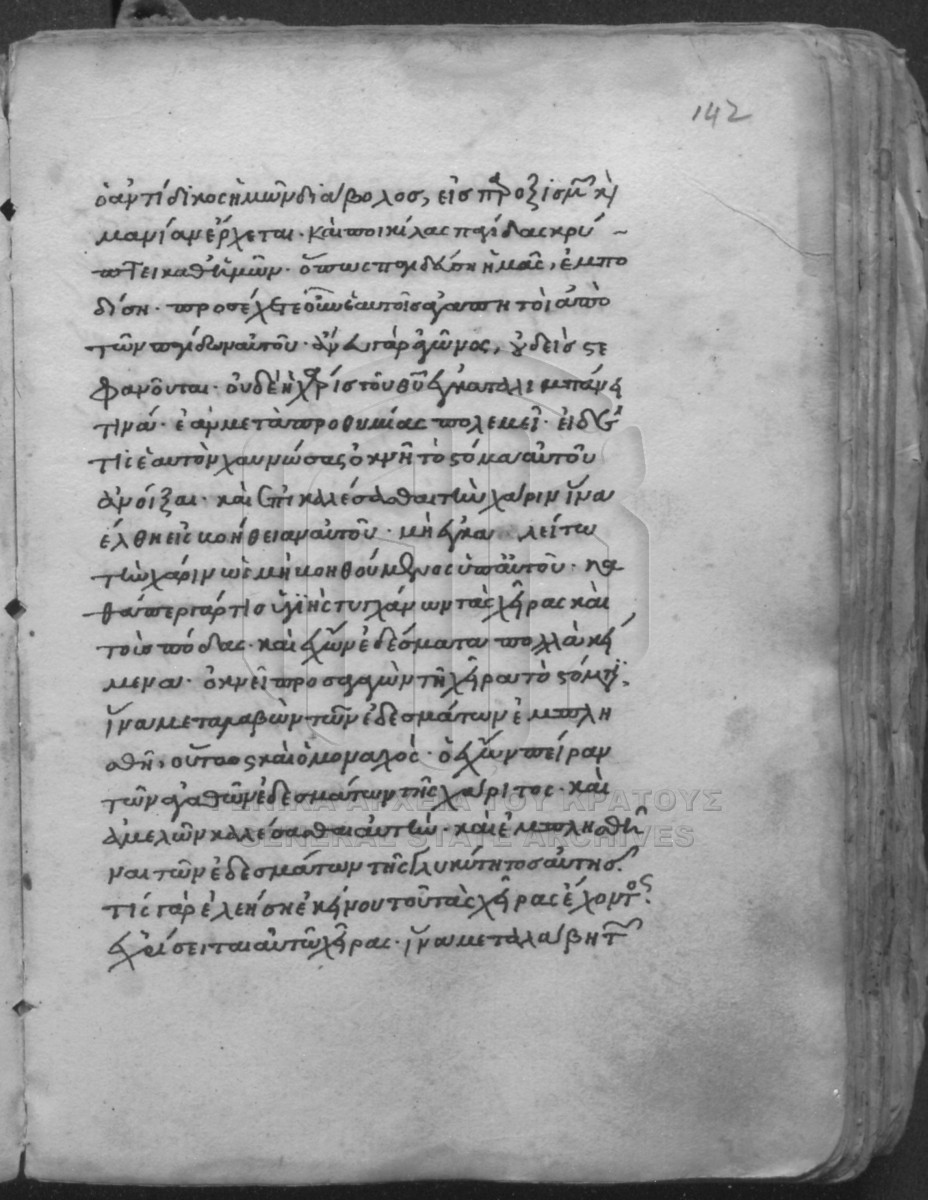 142
ὁ ἀντίδικος ἡμῶν διάβολος, εἰς παροξισμὸν καὶ
μανίαν ἔρχεται· καὶ ποικίλας παγίδας κρύ
πτει καθ' ἡμῶν· ὅπως παγιδεύση ἡμᾶς, ἐμπο
δίση· προσέχετε οὖν ἑαυτοῖς ἀγαπητοὶ ἀπὸ
τῶν παγίδων αὐτοῦ· ἄνευ γὰρ ἀγῶνος, οὐδεὶς στε
φανοῦται· οὐδὲ ἡ χάρις τοῦ θυ ἐγκαταλειμπάνει
τινά· ἐὰν μετὰ προθυμίας πολεμεῖ· εἰ δέ
τις ἑαυτὸν χαυνώσας ὀκνῆ τὸ στόμα αὐτοῦ
ἀνοίξαι· καὶ ἐπικαλέσασθαι τὴν χάριν ἵνα
ἔλθη εἰς βοήθειαν αὐτοῦ· μὴ ἐγκαλείτω
τὴν χάριν ὡς μὴ βοηθούμενος ὑπ' αὐτοῦ· κα
θάπερ γάρ τις ὑγιὴς τυγχάνων τὰς χεῖρας καὶ
τοὺς πόδας· καὶ ἔχων ἐδέσματα πολλὰ κεί
μενα· ὀκνεῖ προσαγαγὼν τῆ χεῖρα τὸ στόματι·
ἵνα μεταλαβὼν τῶν ἐδεσμάτων ἐμπλη
σθῆ, οὕτως καὶ ὁ μοναχός· ὁ ἔχων πείραν
τῶν ἀγαθῶν ἐδεσμάτων τῆς χάριτος· καὶ
ἀμελῶν καλέσασθαι αὐτήν· καὶ ἐμπλησθῆ
ναι τῶν ἐδεσμάτων τῆς γλυκύτητος αὐτῆς·
τίς γὰρ ἐλεήση ἐκείνου τοῦ τὰς χεῖρας ἔχοντος·
χρίσεται αὐτῶ χεῖρας· ἵνα μεταλάβη τῶν